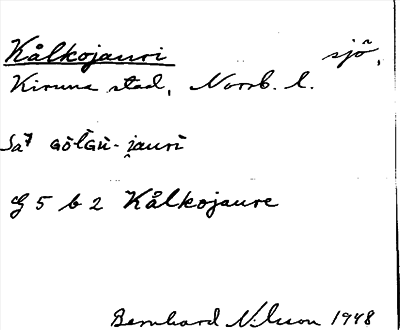 Kålkojauri sjö,
Kiruna stad, Norrb. l.
Sa7 GōlGū-jauri
G 5 b 2 Kålkojaure
Bernhard Nilsson 1948